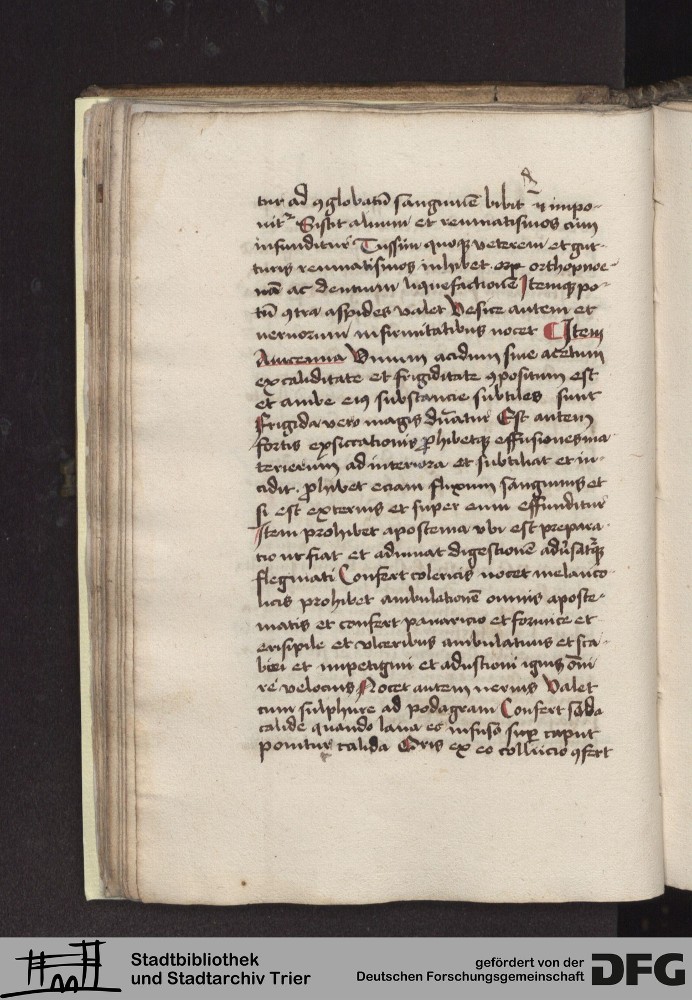 tur ad ꝯglobatū sanguinē bibit᷑ ⁊ impo-
nit᷑ Sistit aluum et reumatismos cum
infunditur Tussim quoqꝫ veterem et gut-
turis reumatismos inhibet orthopnoe-
ac dentium liquefactionē Itemqꝫ po-
tū ꝯtra aspides valet Vesice autem et
neruorum infirmitatibus nocet Item
Auicenna Vinum acidum siue acetum
ex caliditate et frigiditate ꝯpositum est
et ambe eiꝰ substancie subtiles sunt
Frigida vero magis Est autem
fortis exsiccationis ꝓhibetqꝫ effusiones ma
terierum ad interiora et subtiliat et in-
cidit ꝓhibet eciam fluxum sanguinis et
si est exterius et super eum effunditur
Item prohibet apostema vbi est prepara
tio ut fiat et adiuuat digestionē
flegmati Confert colericis nocet melanco
licis prohibet ambulationē omnis aposte-
matis et confert panaricio et formice et
erisipile et vlceribus ambulatiuis et sca-
biei et impetigini et adustioni ignis om̄i
re velocius Nocet autem neruis Valet
cum sulphure ad podagram Confert soda
calide quando lana eo infuso suꝑ caput
ponitur calida Oris ex eo collucio ꝯfert
Stadtbibliothek
und Stadtarchiv Trier
gefördert von der
Deutschen Forschungsgemeinschaft
DFG